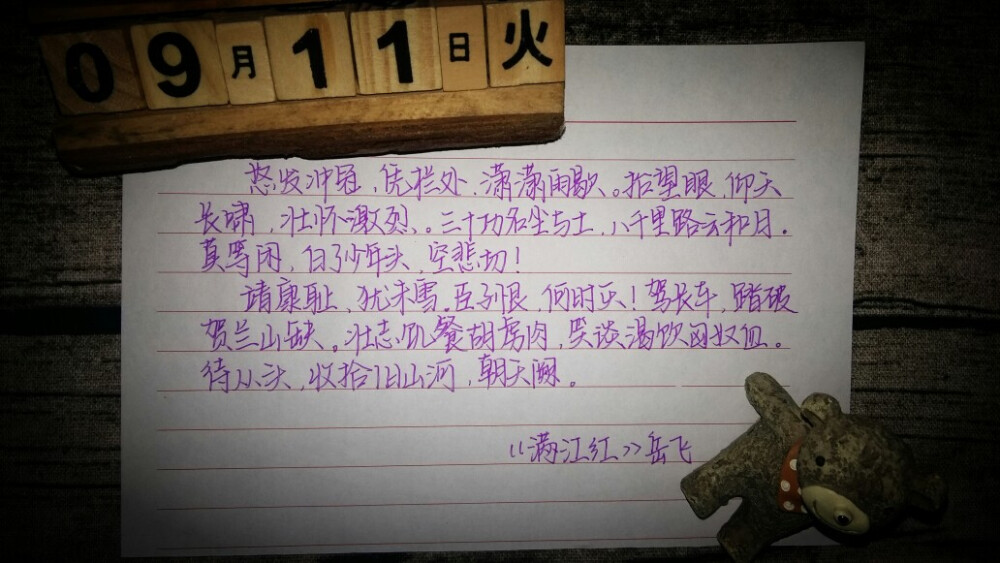 09月11日火
怒发冲冠，凭栏处，潇潇雨歇。抬望眼，仰天
长啸，壮怀激烈。三十功名尘与土，八千里路云和月。
莫等闲，白了少年头，空悲切！
靖康耻，犹未雪。臣子恨，何时灭！驾长车，踏破
贺兰山缺。壮志饥餐胡虏肉，笑谈渴饮匈奴血。
待从头，收拾旧山河，朝天阙。
《满江红》岳飞